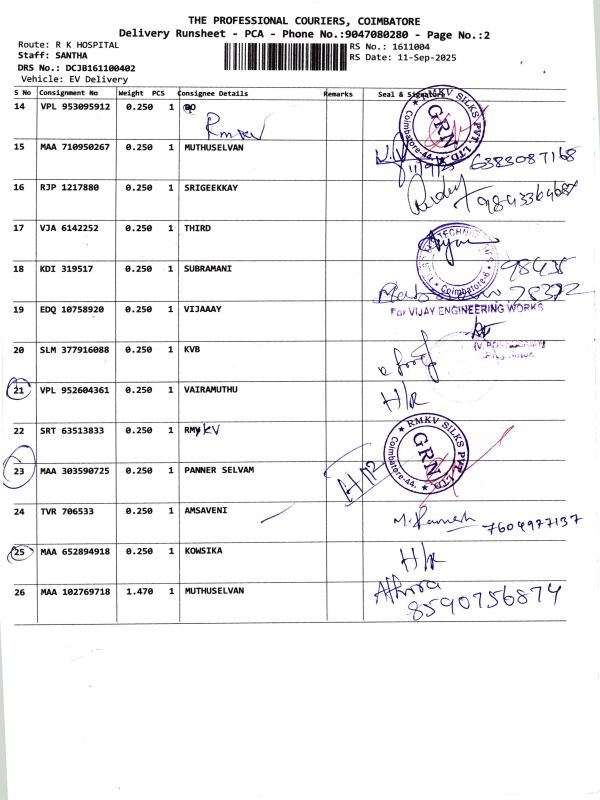 THE PROFESSIONAL COURIERS, COIMBATORE
Delivery Runsheet - PCA - Phone No.:9047080280 - Page No.:2
Route: R K HOSPITAL
RS No.: 1611004
Staff: SANTHA
RS Date: 11-Sep-2025
DRS No.: DCJB161100402
Vehicle: EV Delivery
S No Consignment No Weight PCS Consignee Details Remarks Seal & Signature
14 VPL 953095912 0.250 1
Rmkv
RMKV SILKS PVT. LTD. GRN Coimbatore-44.
15 MAA 710950267 0.250 1 MUTHUSELVAN
11/9/25 6383087168
16 RJP 1217880 0.250 1 SRIGEEKKAY
17 VJA 6142252 0.250 1 THIRD
Coimbatore-6
18 KDI 319517 0.250 1 SUBRAMANI
98435
78372
19 EDQ 10758920 0.250 1 VIJAAAY
For VIJAY ENGINEERING WORKS
20 SLM 377916088 0.250 1 KVB
21 VPL 952604361 0.250 1 VAIRAMUTHU H/R
22 SRT 63513833 0.250 1 RMKV
RMKV SILKS PVT. LTD. GRN Coimbatore-44.
23 MAA 303590725 0.250 1 PANNER SELVAM
24 TVR 706533 0.250 1 AMSAVENI M. Ramesh 7604977137
25 MAA 652894918 0.250 1 KOWSIKA H/R
26 MAA 102769718 1.470 1 MUTHUSELVAN Athira
8590756874